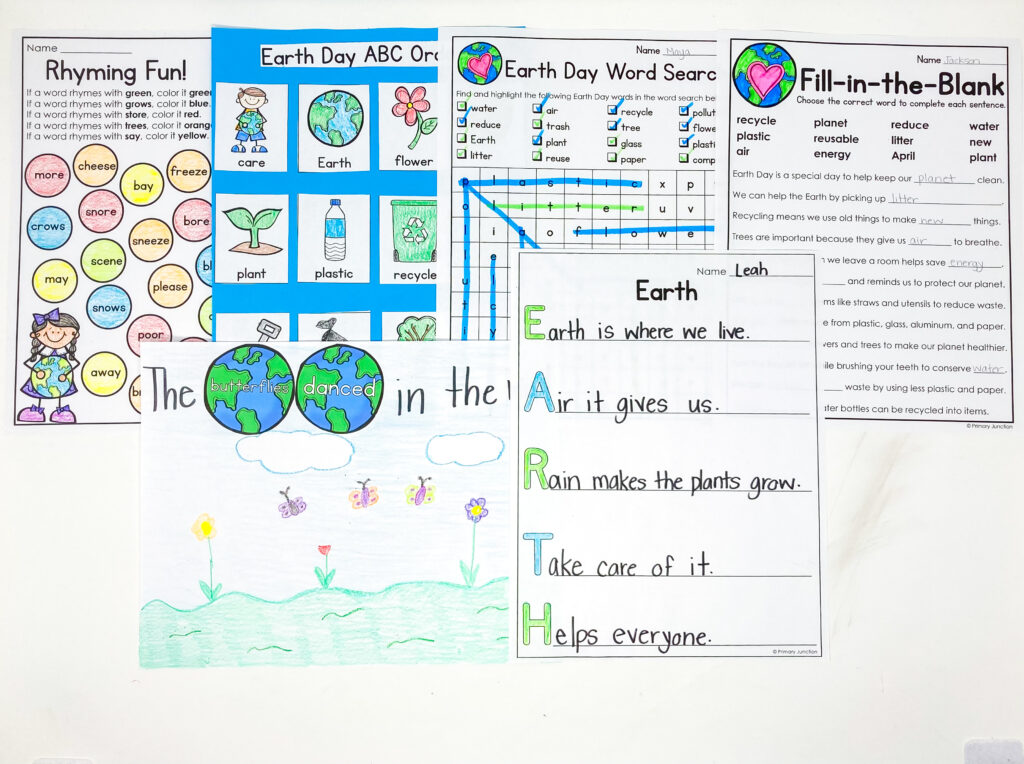 Name
Rhyming Fun!
If a word rhymes with green, color it green
If a word rhymes with grows, color it blue.
If a word rhymes with store, color it red.
If a word rhymes with trees, color it orange
If a word rhymes with say, color it yellow.
more
cheese
bay
freeze
crows
snore
sneeze
bore
scene
may
snows
please
poor
away
Earth Day ABC Or
care
Earth
flower
plant
plastic
recycle
Name Maya
Earth Day Word Searc
Find and highlight the following Earth Day words in the word search be
water
air
recycle
pollut
reduce
trash
tree
flowe
Earth
plant
glass
plasti
litter
reuse
paper
comp
p l a s t i c x p
o l i t t e r u v
l i a o f l o w e
l e
u l
t c
i y
Name Jackson
Fill-in-the-Blank
Choose the correct word to complete each sentence.
recycle planet reduce water
plastic reusable litter new
air energy April plant
Earth Day is a special day to help keep our planet clean.
We can help the Earth by picking up litter.
Recycling means we use old things to make new things.
Trees are important because they give us air to breathe.
we leave a room helps save energy.
and reminds us to protect our planet.
ms like straws and utensils to reduce waste.
e from plastic, glass, aluminum, and paper.
vers and trees to make our planet healthier.
ile brushing your teeth to conserve water.
waste by using less plastic and paper.
ter bottles can be recycled into items.
© Primary Junction
The butterflies danced in the
Name Leah
Earth
Earth is where we live.
Air it gives us.
Rain makes the plants grow.
Take care of it.
Helps everyone.
© Primary Junction